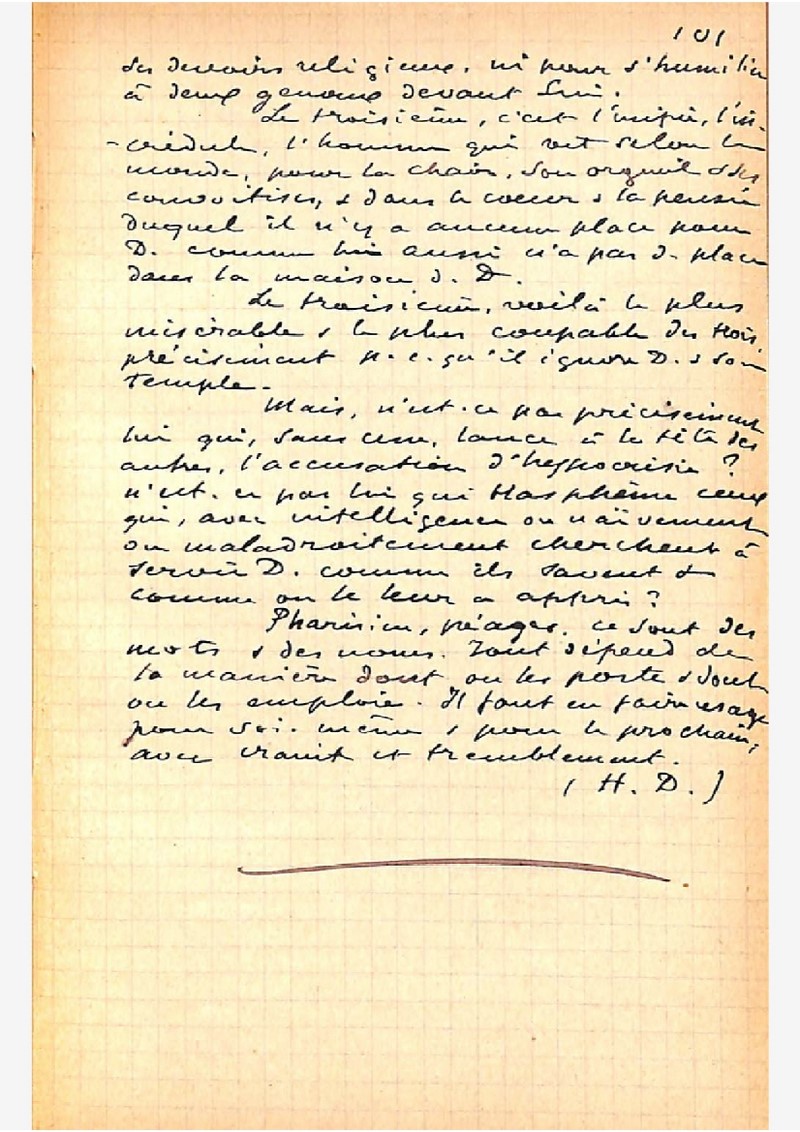 101
ses devoirs religieux, ni pour s'humilier
à deux genoux devant Lui.
Le troisième, c'est l'impie, l'in-
-crédule, l'homme qui vit selon le
monde, pour la chair, son orgueil & ses
convoitises, & dans le coeur & la pensée
duquel il n'y a aucune place pour
D. comme lui aussi n'a pas de place
dans la maison d. D.
Le troisième, voilà le plus
misérable & le plus coupable des trois,
précisément p. c. qu'il ignore D. & son
temple.
Mais, n'est-ce pas précisément
lui qui, sans cesse, lance à la tête des
autres, l'accusation d'hypocrisie ?
n'est-ce pas lui qui blasphème ceux
qui, avec intelligence ou naïvement
ou maladroitement cherchent à
servir D. comme ils savent &
comme on le leur a appris ?
Pharisien, péager, ce sont des
mots & des noms. Tout dépend de
la manière dont on les porte & dont
on les emploie. Il faut en faire usage
pour soi-même & pour le prochain,
avec crainte et tremblement.
(H. D.)